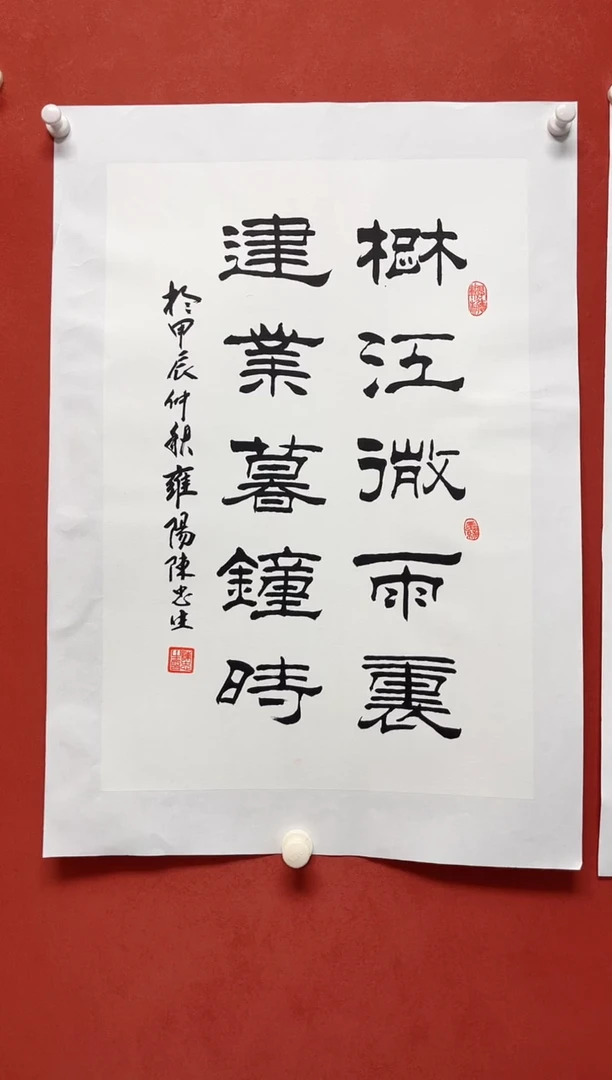 楚江微雨裏
建業暮鐘時
於甲辰仲秋雍陽陳忠生